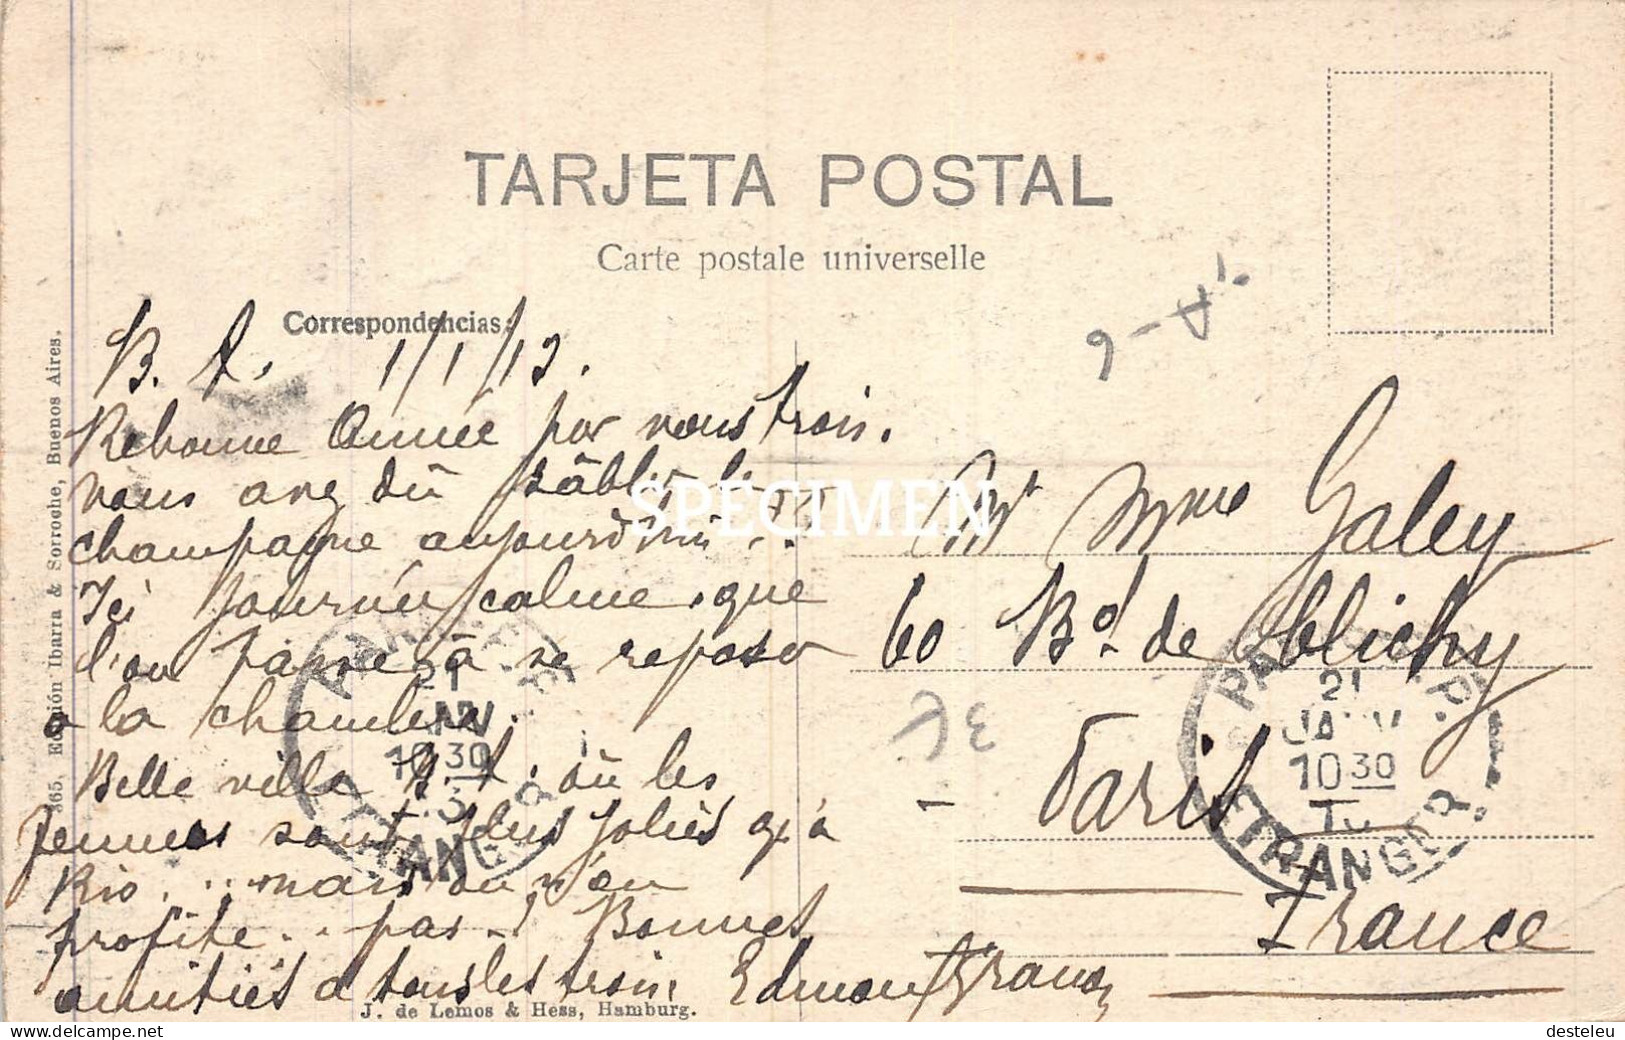 TARJETA POSTAL
Carte postale universelle
Correspondencias:
B. A. 1/1/13.
Rebonne Année por vous trois.
vous avez dû sâbler le
champagne aujourd'hui..
Ici journée calme, que
l'on passe à se reposer
a la chambre.
Belle ville B. A. où les
femmes sont plus jolies qu'à
Rio... mais on n'en
profite.. pas.! Bonnes
amitiés a tous les trois. Edmond
Mr Mme Galey
60 Bd. de Clichy
- Paris
France
SPECIMEN
PARIS
21
10 30
ETRANGER
PARIS
21
JANV
10 30
ETRANGER
365. Edición Ibarra & Sorroche, Buenos Aires.
J. de Lemos & Hess, Hamburg.
desteleu